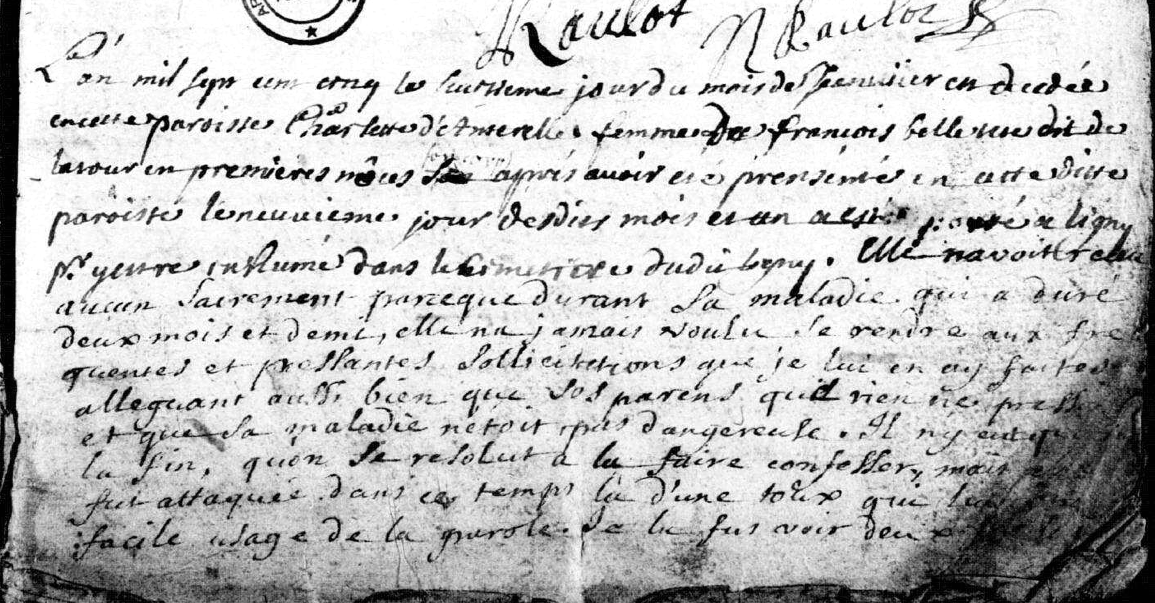 Raulot N Raulot
L'an mil sept cent cinq le huitieme jour du mois de Jeanvier est decedée
en cette paroisse Charlette d'Anterelle femme De françois belle dit de
latour en premieres nôces après avoir eté prensenté en cette ditte
paroisse le neuvieme jour desdits mois et an a esté porté a ligny
pr y estre inhumé dans le Cimetiere dudit Ligny. Elle navoit recu
aucun Sacrement parceque durant Sa maladie qui a duré
deux mois et demi, elle na jamais voulu Se rendre aux fre
quentes et pressantes Sollicitations que je lui en ay faites
alleguant aussi bien que Ses parens que rien ne
et que Sa maladie n'etoit pas dangereuse. Il ny eut
la fin, quon Se resolut a la faire confesser, mais
fut attaquée dans ce temps là d'une toux qui
facile usage de la parole. Je la fus voir deux